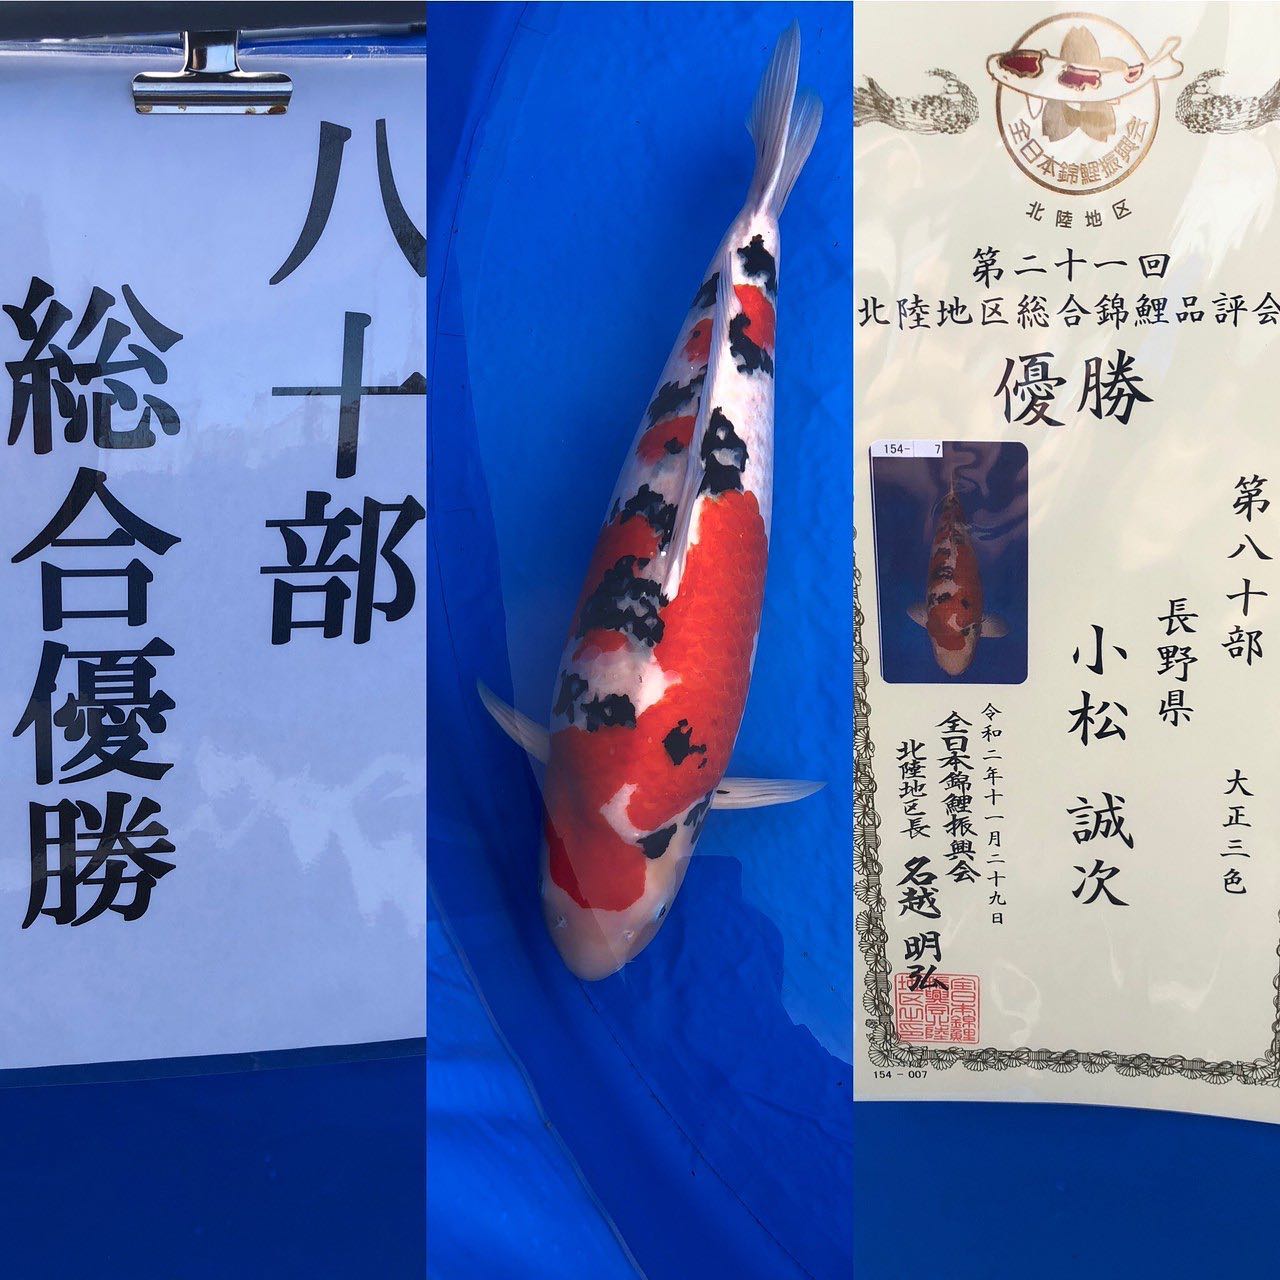 八十部
総合優勝
全日本錦鯉振興会
北陸地区
第二十一回
北陸地区総合錦鯉品評会
優勝
154- 7
第八十部 大正三色
長野県
小松 誠次
令和二年十一月二十九日
全日本錦鯉振興会
北陸地区長 名越 明弘
154 - 007